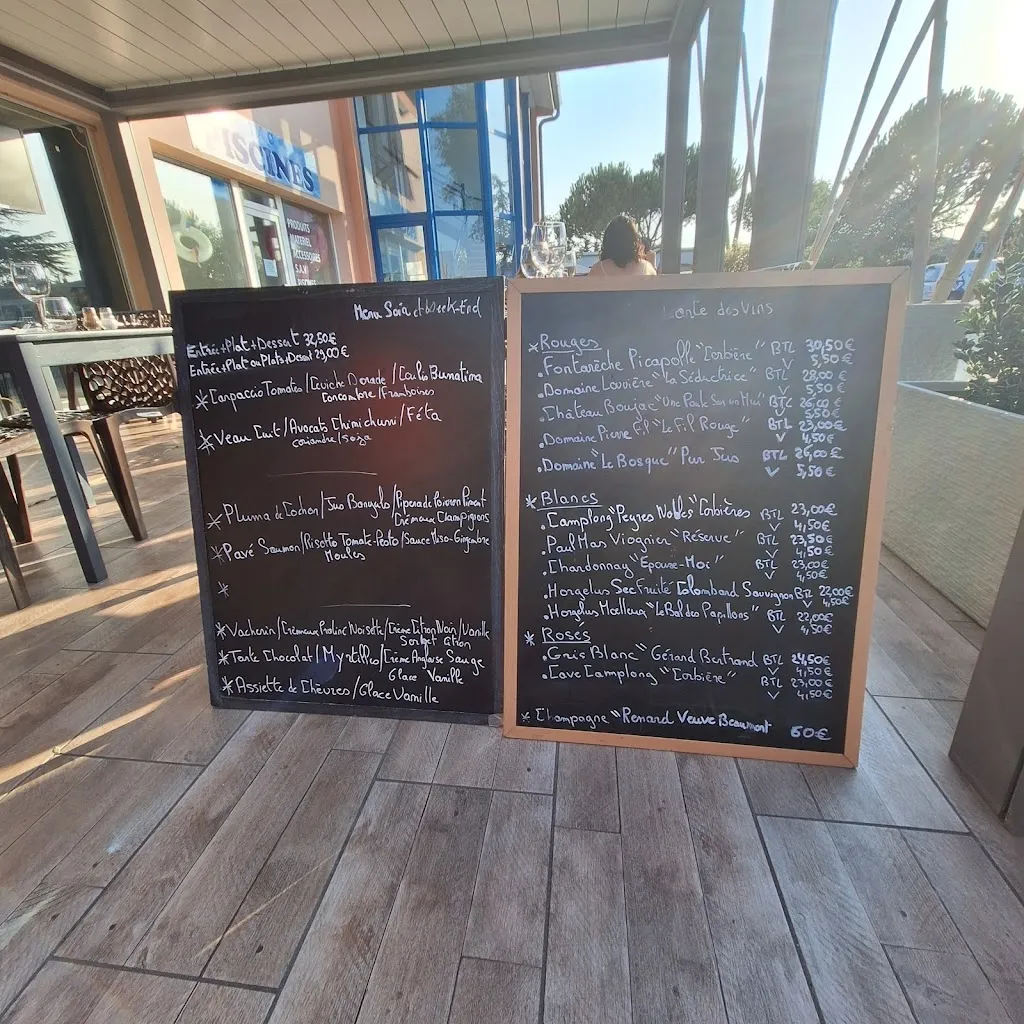 ISCINES
PRODUITS
MATERIEL
ACCESSOIRES
S.A.V
Menu Soir et Week-End
Entrée+Plat+Dessert 32,50€
Entrée+Plat ou Plats+Dessert 29,00€
* Carpaccio Tomates / Ceviche Dorade / Coulis Buratina
Concombre/Framboises
* Veau Cuit / Avocats Chimichurri / Féta
coriandre/soja
* Pluma de Cochon / Jus Banyuls / Piperade Poivron Piment
Crémeux Champignons
* Pavé Saumon / Risotto Tomate-Pesto / Sauce Miso-Gingembre
Moules
*
* Vacherin / Crémeux Praliné Noisette / Crème Citron Noir / Vanille
Sorbet Citron
* Tarte Chocolat / Myrtilles / Crème Anglaise Sauge
Glace Vanille
* Assiette de Chèvres / Glace Vanille
Carte des Vins
* Rouges
. Fontarèche Picapolle "Corbière" BTL 30,50€
V 5,50€
. Domaine Louvière "La Séductrice" BTL 28,00€
V 5,50€
. Château Boujac "Une Poule Sur un Mur" BTL 26,00€
V 5,50€
. Domaine Pierre Fil "Le Fil Rouge" BTL 23,00€
V 4,50€
. Domaine "Le Bosque" Pur Jus BTL 26,00€
V 5,50€
* Blancs
. Camplong "Peyres Nobles" Corbières BTL 23,00€
V 4,50€
. Paul Mas Viognier "Réserve" BTL 23,50€
V 4,50€
. Chardonnay "Epouse-Moi" BTL 23,00€
V 4,50€
. Horgelus Sec Fruité Colombard Sauvignon BTL 22,00€
V 4,50€
. Horgelus Moelleux "Le Bal des Papillons" BTL 22,00€
V 4,50€
* Roses
. Gris Blanc "Gérard Bertrand BTL 24,50€
V 4,50€
. Cave Camplong "Corbière" BTL 23,00€
V 4,50€
* Champagne "Renard Veuve Beaumont 60€